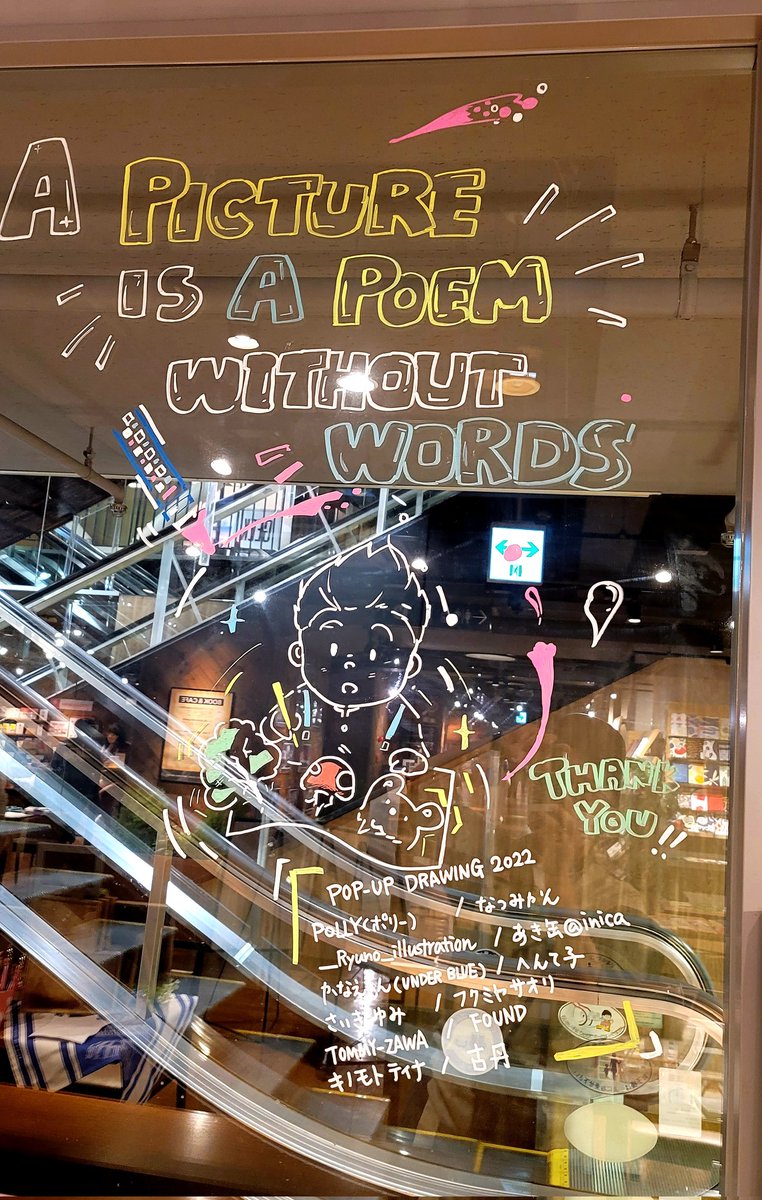 A PICTURE
IS A POEM
WITHOUT
WORDS
BOOK & CAFE
THANK
YOU!!
「POP-UP DRAWING 2022
POLLY(ポリー) / なつみかん
__Ryuno_illustration / あき缶@inica
かなえもん(UNDER BLUE) / へんて子
さいきゆみ / フクミヤサオリ
TOMMY-ZAWA / FOUND
キノモトティナ / 古丹」